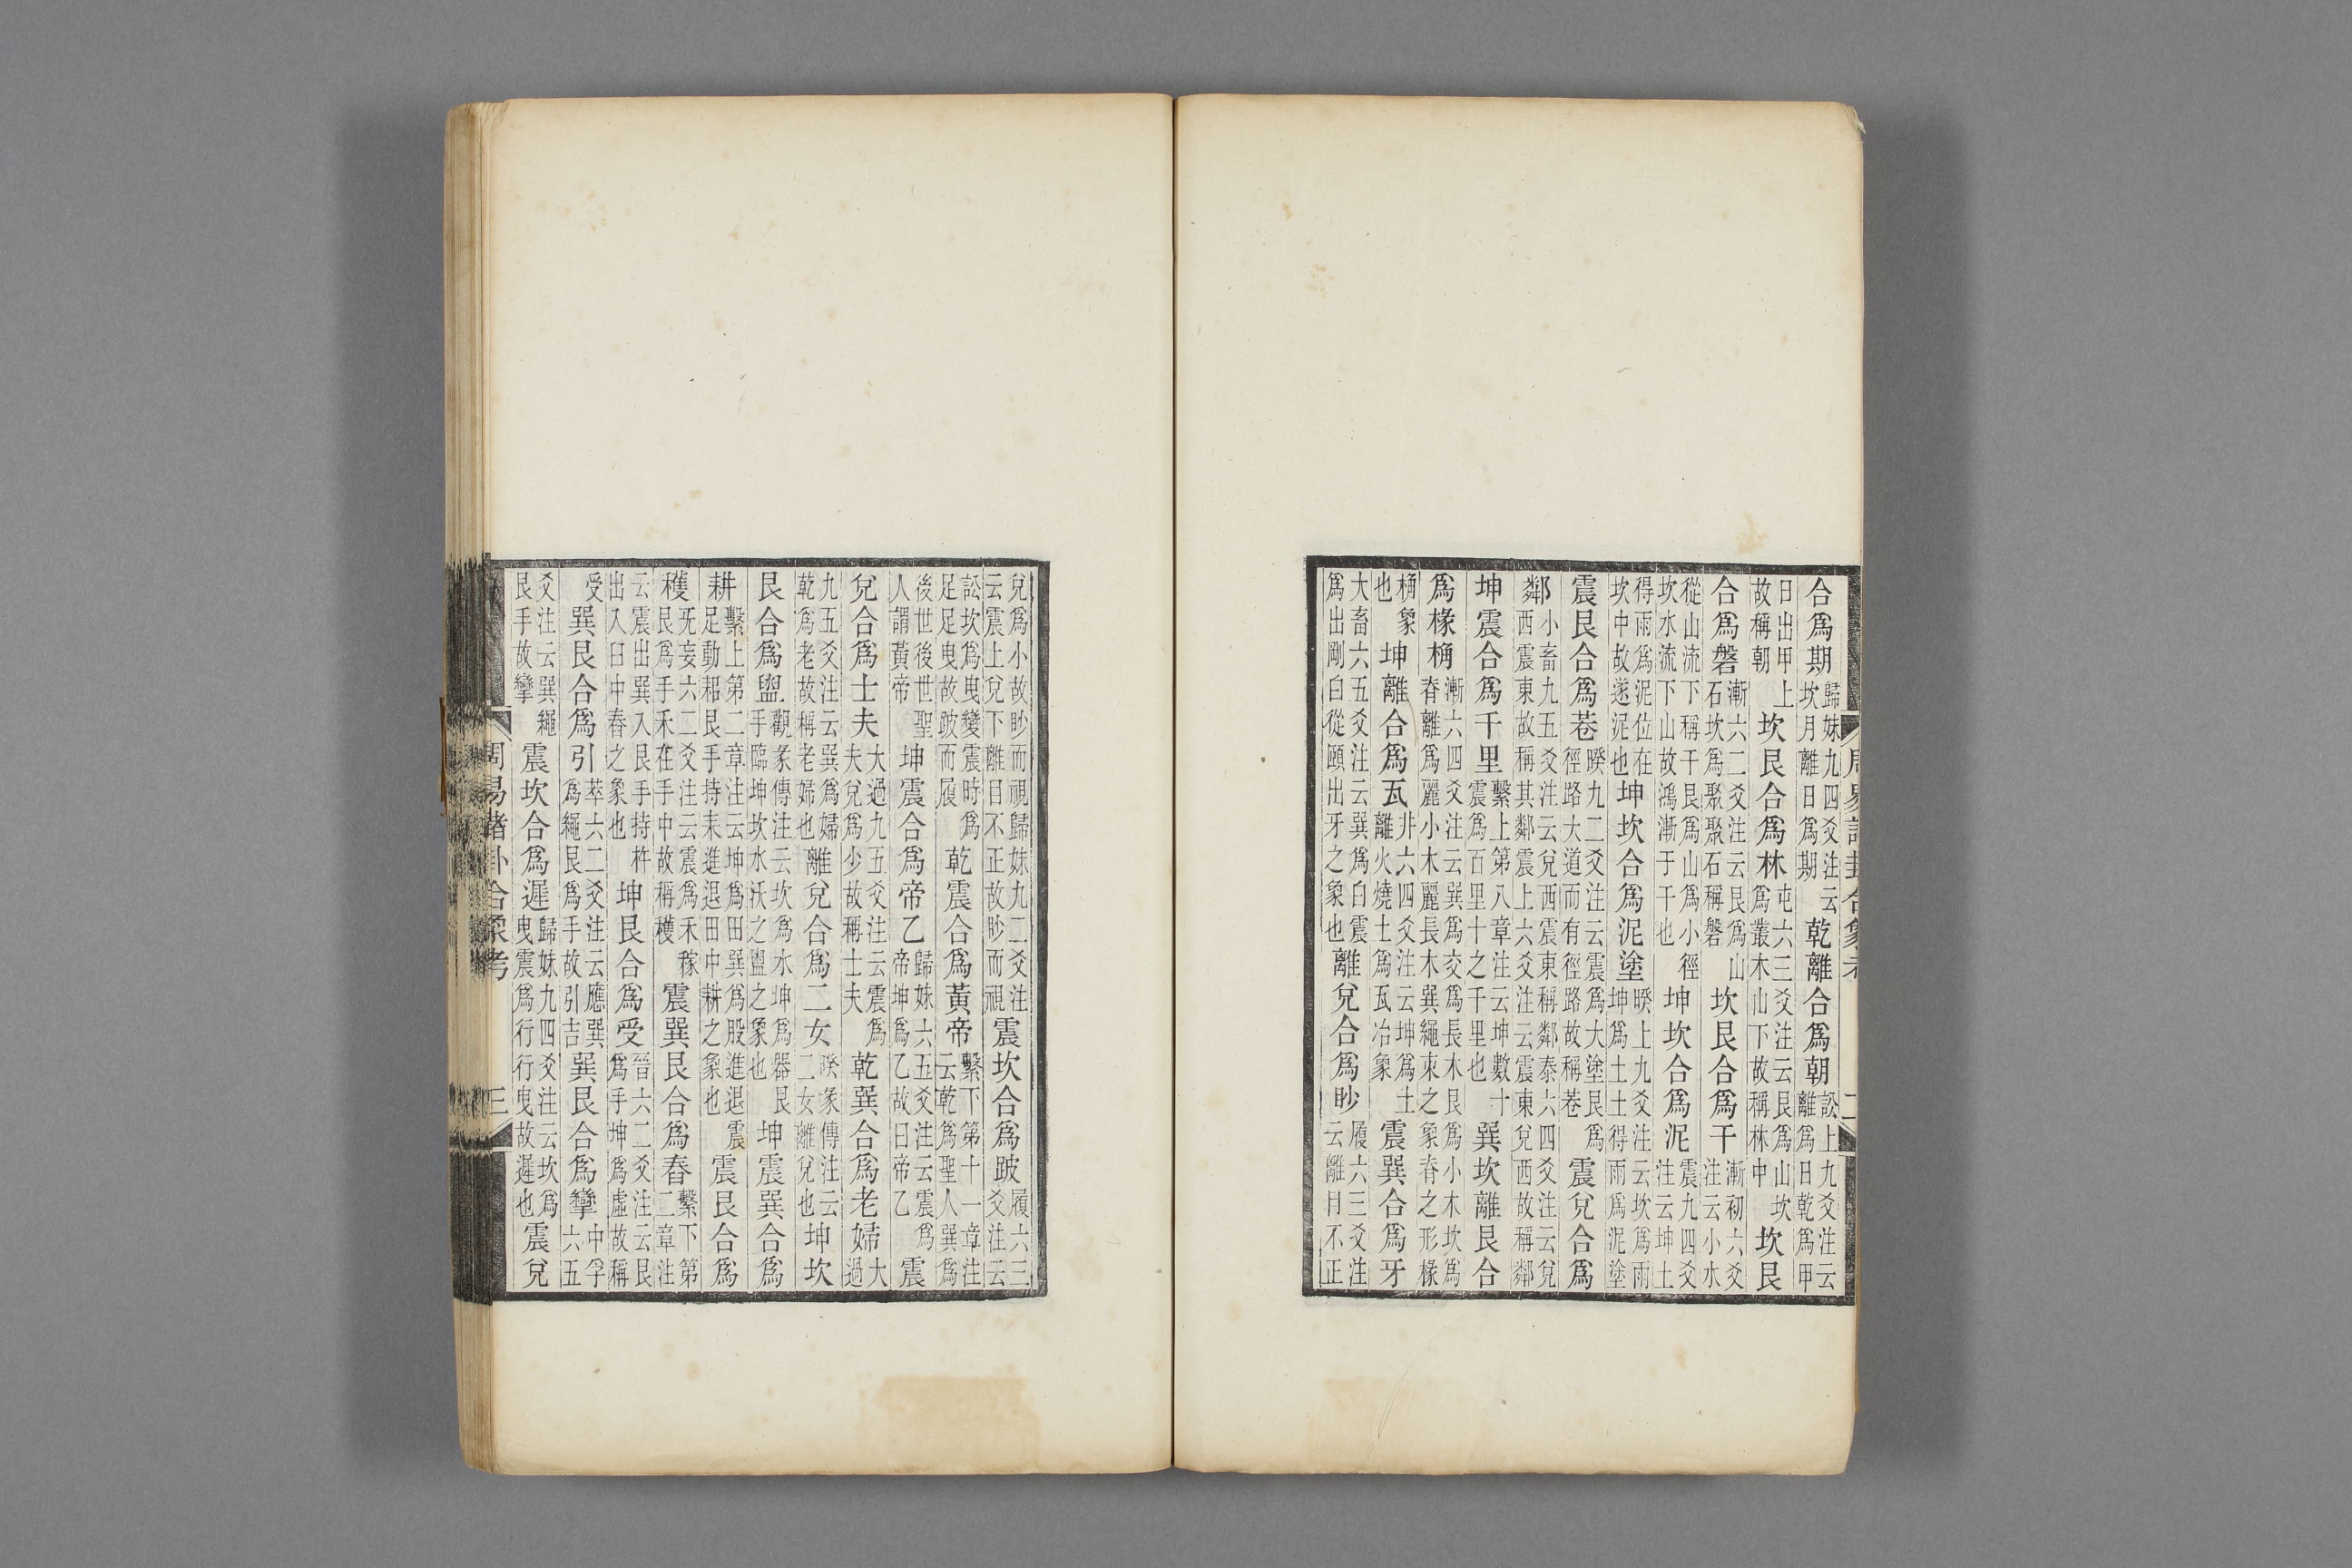 合爲期歸妹九四爻注云坎月離日爲期乾離合爲朝訟上九爻注云離爲日乾爲甲
日出甲上故稱朝坎艮合爲林屯六三爻注云艮爲山坎爲叢木山下故稱林中坎艮
合爲磐漸六二爻注云艮爲山石坎爲聚聚石稱磐坎艮合爲干漸初六爻注云小水
從山流下稱干艮爲山爲小徑坎水流下山故鴻漸于干也坤坎合爲泥震九四爻注云坤土
得雨爲泥位在坎中故遂泥也坤坎合爲泥塗睽上九爻注云坎爲雨坤爲土土得雨爲泥塗
震艮合爲巷睽九二爻注云震爲大塗艮爲徑路大道而有徑路故稱巷震兌合爲
鄰小畜九五爻注云兌西震東稱鄰泰六四爻注云兌西震東故稱其鄰震上六爻注云震東兌西故稱鄰
坤震合爲千里繫上第八章注云坤數十震爲百里十之千里也巽坎離艮合
爲椽桷漸六四爻注云巽爲交爲長木艮爲小木坎爲脊離爲麗小木麗長木巽繩束之象脊之形椽
桷象也坤離合爲瓦井六四爻注云坤爲土離火燒土爲瓦冶象震巽合爲牙
大畜六五爻注云巽爲白震爲出剛白從頤出牙之象也離兌合爲眇履六三爻注云離目不正
周易諸卦合象考 二
兌爲小故眇而視歸妹九二爻注云震上兌下離目不正故眇而視震坎合爲跛履六三爻注云
訟坎爲曳變震時爲足足曳故跛而履乾震合爲黃帝繫下第十一章注云乾爲聖人巽爲
後世後世聖人謂黃帝坤震合爲帝乙歸妹六五爻注云震爲帝坤爲乙故曰帝乙震
兌合爲士夫大過九五爻注云震爲夫兌爲少故稱士夫乾巽合爲老婦大過
九五爻注云巽爲婦乾爲老故稱老婦也離兌合爲二女睽彖傳注云二女離兌也坤坎
艮合爲盥觀彖傳注云坎爲水坤爲器艮手臨坤坎水沃之盥之象也坤震巽合爲
耕繫上第二章注云坤爲田巽爲股進退震足動耜艮手持耒進退田中耕之象也震艮合爲
穫无妄六二爻注云震爲禾稼艮爲手禾在手中故稱穫震巽艮合爲舂繫下第二章注
云震出巽入艮手持杵出入臼中舂之象也坤艮合爲受晉六二爻注云艮爲手坤爲虛故稱
受巽艮合爲引萃六二爻注云應巽爲繩艮爲手故引吉巽艮合爲攣中孚六五
爻注云巽繩艮手故攣震坎合爲遲歸妹九四爻注云坎爲曳震爲行行曳故遲也震兌
周易諸卦合象考 三